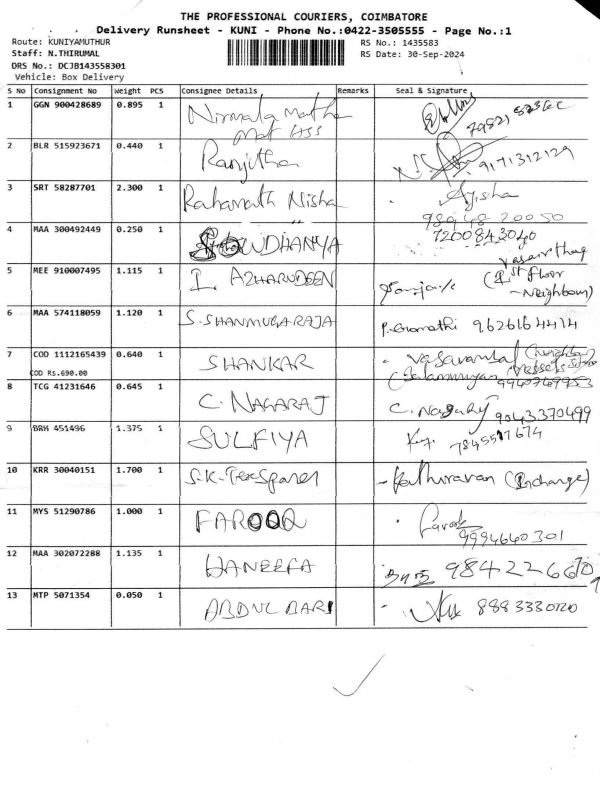 THE PROFESSIONAL COURIERS, COIMBATORE
Delivery Runsheet - KUNI - Phone No.:0422-3505555 - Page No.:1
Route: KUNIYAMUTHUR
RS No.: 1435583
Staff: N.THIRUMAL
RS Date: 30-Sep-2024
DRS No.: DCJB143558301
Vehicle: Box Delivery
S No Consignment No Weight PCS Consignee Details Remarks Seal & Signature
1 GGN 900428689 0.895 1 Nirmala Matha
Mat HSS
2 BLR 515923671 0.440 1 Ranjitha 9171312129
3 SRT 58287701 2.300 1 Rahamath Nisha Ajisha
98948 20050
4 MAA 300492449 0.250 1 SOWDHANYA 7200843040
5 MEE 910007495 1.115 1 I. AZHARUDEEN (1st floor
- Neighbour)
6 MAA 574118059 1.120 1 S. SHANMUGARAJA P. Gomathi 9626164414
7 COD 1112165439 0.640 1 SHANKAR
COD Rs.690.00 9940769953
8 TCG 41231646 0.645 1 C. NAGARAJ C. Nagaraj 9043370499
9 BRH 451496 1.375 1 SULFIYA 7845517674
10 KRR 30040151 1.700 1 S.K. Tex Spares Kathiravan (Incharge)
11 MYS 51290786 1.000 1 FAROOQ Farook
9994640301
12 MAA 302072288 1.135 1 HANEEFA
13 MTP 5071354 0.050 1 ABDUL BARI 8883330120